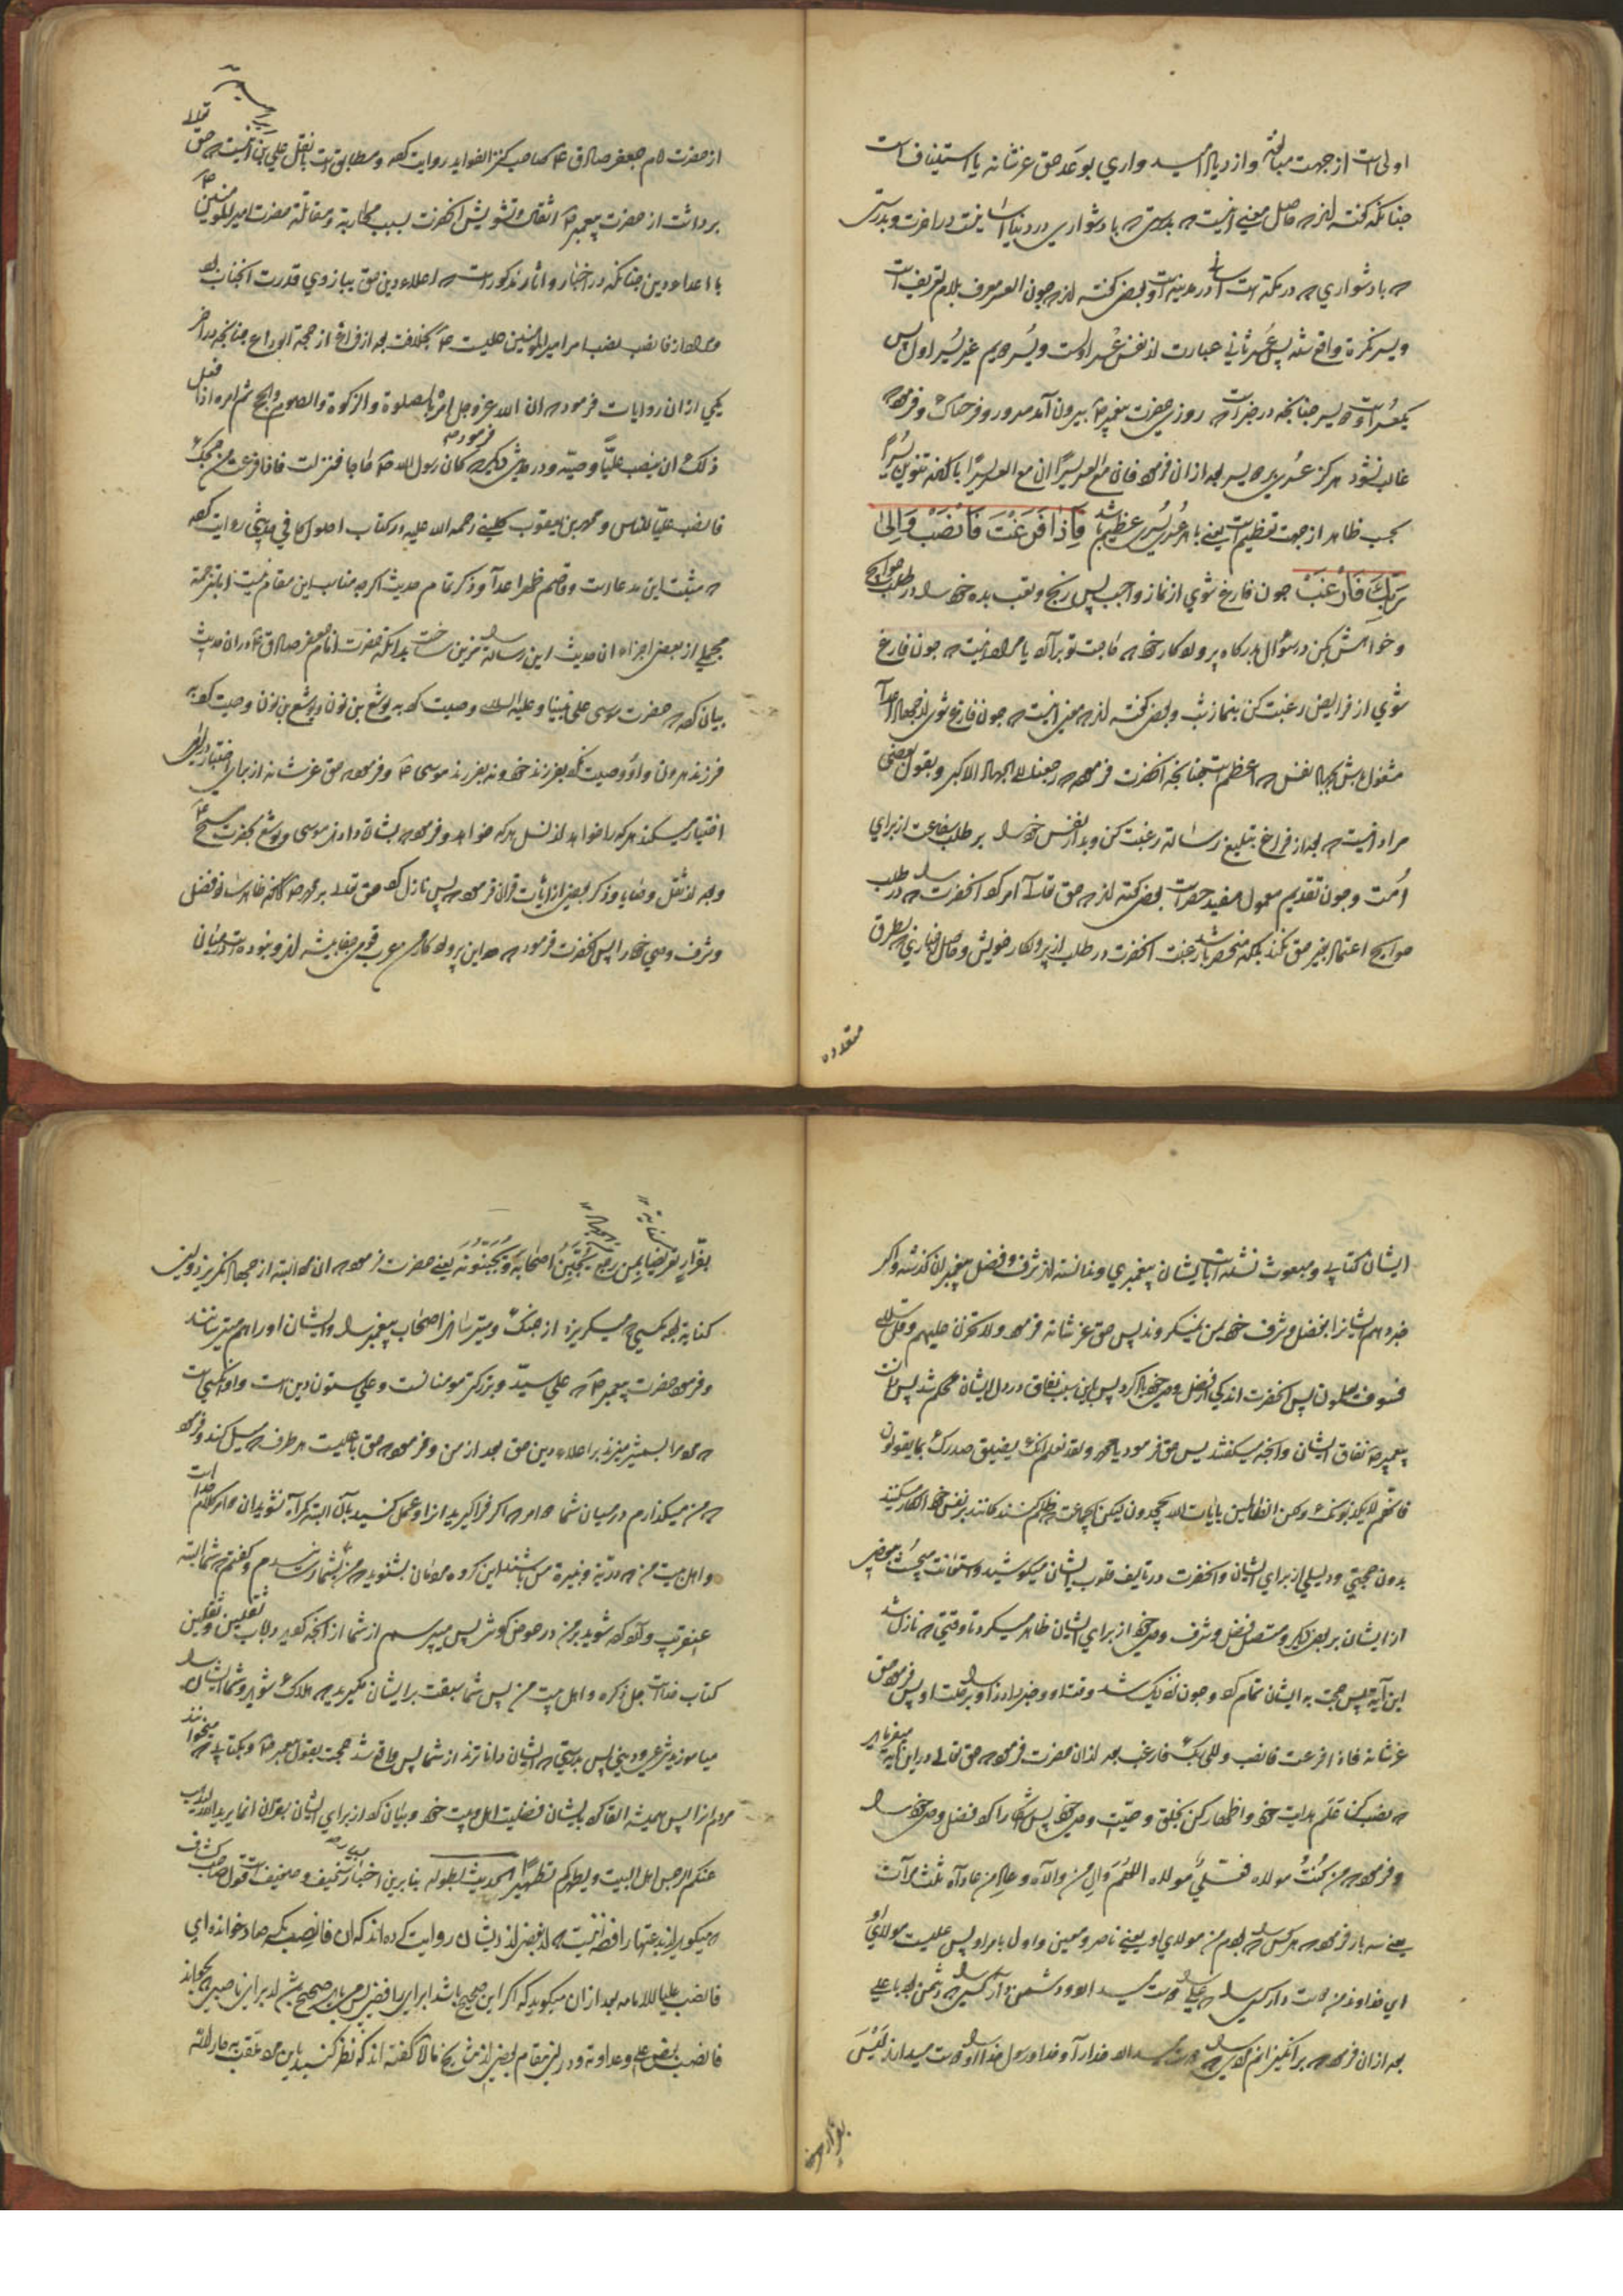 اولی است از جهت مبالغه و ازدیاد امیدواری بوعد حق عزشانه یا استیناف است
چنانکه گفته اند که حاصل معنی اینست که بدرستی که با دشواری در دنیا آسانیست در آخرت و بدرستی
که با دشواری که در مکه است آسانی در مدینه است و بعضی گفته اند که چون العسر معرف بلام تعریف است
و یسر نکره واقع شده پس عسر ثانی عبارت از نفس عسر اولست و یسر دویم غیر یسر اول پس
یکعسر است و دو یسر چنانچه در خبر است که روزی حضرت پیغمبر ص بیرون آمد مسرور و فرحناک و فرمود که
غالب نشود هرگز عسری بدو یسر بعد از ان فرمود فان مع العسر یسرا ان مع العسر یسرا با آنکه تنوین یسرا
بحسب ظاهر از جهت تعظیم است یعنی با هر عسری یسری عظیم باشد فَاِذَا فَرَغْتَ فَانْصَبْ وَاِلٰی
رَبِّکَ فَارْغَبْ چون فارغ شوی از نماز واجب پس رنج و تعب بده خود را در طلب حوایج
و خواهش بکن در سؤال بدرگاه پروردگار خود که حاجت تو برآرد یا مراد اینست که چون فارغ
شوی از فرایض رغبت کن بنماز شب و بعضی گفته اند که معنی اینست که چون فارغ شوی از جهاد اعدا
مشغول باش بجهاد نفس که اعظم است چنانچه آنحضرت فرموده رجعنا الی الجهاد الاکبر و بقول بعضی
مراد اینست که بعد از فراغ تبلیغ رسالة رغبت کن و بدار نفس خود را بر طلب شفاعت از برای
امت و چون تقدیم معمول مفید حصر است بعضی گفته اند که حق تعالی امر کرد آنحضرت را که در طلب
حوایج اعتماد بغیر حق نکند بلکه منحصر باشد رغبت آنحضرت در طلب از پروردگار خویش و فاضل رازی بطرق
متعدده
از حضرت امام جعفر صادق ع صاحب کنز الفواید روایت کرده و مطابق است با نقل علی بن اینست که حق تعالی
برداشت از حضرت پیغمبر ص اثقال و تشویش آنحضرت بسبب محاربة و مقاتلة حضرت امیر المؤمنین ع
با اعداء دین چنانکه در اخبار و آثار مذکور است که اعلاء دین حق ببازوی قدرت آنجناب بود
و مراد از فانصب نصب امر امیر المؤمنین علیست ع بخلافت بعد از فراغ از حجة الوداع چنانچه در آخر
یکی از ان روایات فرمود که ان الله عزوجل امره بالصلوة والزکوة والصوم والحج ثم امره اذا فعل
ذلک ان ینصب علیا وصیه و در حدیث دیگر فرموده که کان رسول الله ص حاجا فنزلت فاذا فرغت من حجک
فانصب علیا للناس و محمد بن یعقوب کلینی رحمه الله علیه در کتاب اصول کافی حدیثی روایت کرده
که مثبت این مدعاست و قاصم ظهر اعدا و ذکر تمام حدیث اگر چه مناسب این مقام نیست اما بترجمة
مجملی از بعض اجزاء ان حدیث این رساله را مزین ساخت بدانکه حضرت امام جعفر صادق ع در ان حدیث
بیان کرده که حضرت موسی علی نبینا و علیه السلام وصیت کرد به یوشع بن نون و یوشع بن نون وصیت کرد به
فرزند هرون و او وصیت نکرد بفرزند خود و نه بفرزند موسی ع و فرموده حق عزشانه از برای اختیار
اختیار میکند هر که را خواهد از نسل هر که خواهد و فرمود که بشارت دادند موسی و یوشع بحضرت مسیح ع
و بعد از نقل وصایا و ذکر بعضی از آیات قرآن فرموده پس نازل کرد حق تعالی بر محمد ص که ظاهر ساز فضل
و شرف وصی خود را پس آنحضرت فرمود که خداوندا این پروردگار من عرب قومی جفا پیشه اند و نبوده است در میان
ایشان کتابی و مبعوث نشده است بایشان پیغمبری و ندانسته اند شرف و فضل پیغمبران گذشته و اگر
خبر دهم ایشانرا بفضل و شرف خود بمن نمیگروند پس حق عزشانه فرمود ولا تحزن علیهم و قل سلام
فسوف تعلمون پس آنحضرت اندکی از فضل وصی خود یاد کرد پس باین سبب نفاق در دل ایشان محکم شد پس دانست
پیغمبر ص نفاق ایشان و آنچه میگفتند پس حق فرمود یا محمد ولقد نعلم انک یضیق صدرک بما یقولون
فانهم لا یکذبونک ولکن الظالمین بایات الله یجحدون لیکن آنجماعت ظلم کننده گانند بر نفس خود انکار میکنند
بدون حجتی و دلیلی از برای ایشان و آنحضرت در تألیف قلوب ایشان میکوشید و استعانت میجست ببعضی
از ایشان بر بعض دیگر و متصل فضل و شرف وصی خود از برای ایشان ظاهر میکرد تا وقتی که نازل شد
این آیه پس حجت به ایشان تمام کرد و چون نزدیک شد وفات او و خبر داد او را برحلت او پس فرمود حق
عزشانه فاذا فرغت فانصب و الی ربک فارغب بعد از ان حضرت فرموده حق تعالی در این آیه میفرماید
که نصب کن علم هدایت خود و اظهار کن بخلق وصیت وصی خود پس آشکارا کرد فضل وصی خود را
و فرمود که من کنت مولاه فعلی مولاه اللهم وال من والاه و عاد من عاداه ثلث مرات
یعنی سه بار فرمود که هر کس را که بودم من مولای او یعنی ناصر و معین و اول بامر او پس علیست مولای او
ای خداوند من دوست دار کسی را که علی را دوست میدارد و دشمن دار کسی را که دشمن بود با علی
بعد از ان فرمود که برانگیزانم مردی را که دوست میدارد خدا را و خدا و رسول خدا او را دوست میدارند لیس
بفرار من
بفرار تعریضا بمن رجع یجبن اصحابه و یجبنونه یعنی حضرت فرمود که ان مرد البته از جهاد نگریزد و این
کنایه بود بکسی که میگریزد از جنگ و میترساند اصحاب پیغمبر را و ایشان او را هم میترسانند
و فرمود حضرت پیغمبر ص که علی سید و بزرگتر مومنانست و علی ستون دین است و او آنکسی است
که مردم را بشمشیر میزند بر اعلاء دین حق بعد از من و فرمود که حق با علیست هر طرف که میل کند و فرمود
که من میگذارم در میان شما دو امر که اگر فراگیرید انرا و عمل کنید بآن البته گمراه نشوید ان دو امر کلام خداست
و اهل بیت من که ذریه و عترة من باشند این گروه مردمان بشنوید که من بشما رسانیدم و گفتم که شما البته
عنقریب وارد خواهید شوید بر من در حوض کوثر پس میپرسم از شما از آنچه کردید در باب ثقلین و ثقلین
کتاب خداست جل ذکره و اهل بیت من پس شما سبقت بر ایشان مگیرید که هلاک شوید و شما ایشان را
میاموزید چیزی پس بدرستی که ایشان داناترند از شما پس واقع شد حجت بقول پیغمبر ص و بکتابی که میخوانند
مردم انرا پس همیشه القا کرد بایشان فضیلت اهل بیت خود و بیان کرد از برای ایشان بقرآن انما یرید الله لیذهب
عنکم الرجس اهل البیت و یطهرکم تطهیرا الحدیث بطوله بنابرین اخبار سخیف و ضعیفست قول صاحب کشاف
که میگوید از بدعتهاء رافضه اینست که از بعض از ایشان روایت کرده اند که ان فانصب بکسر صاد خوانده ای
فانصب علیا للامامه بعد از ان میگوید که اگر این صحیح باشد از برای رافضی پس باید صحیح باشد از برای ناصبی که بخواند
فانصب بغض علی و عداوته و در این مقام بعضی از مشایخ ما گفته اند که نظر کنید باین مردود عقب